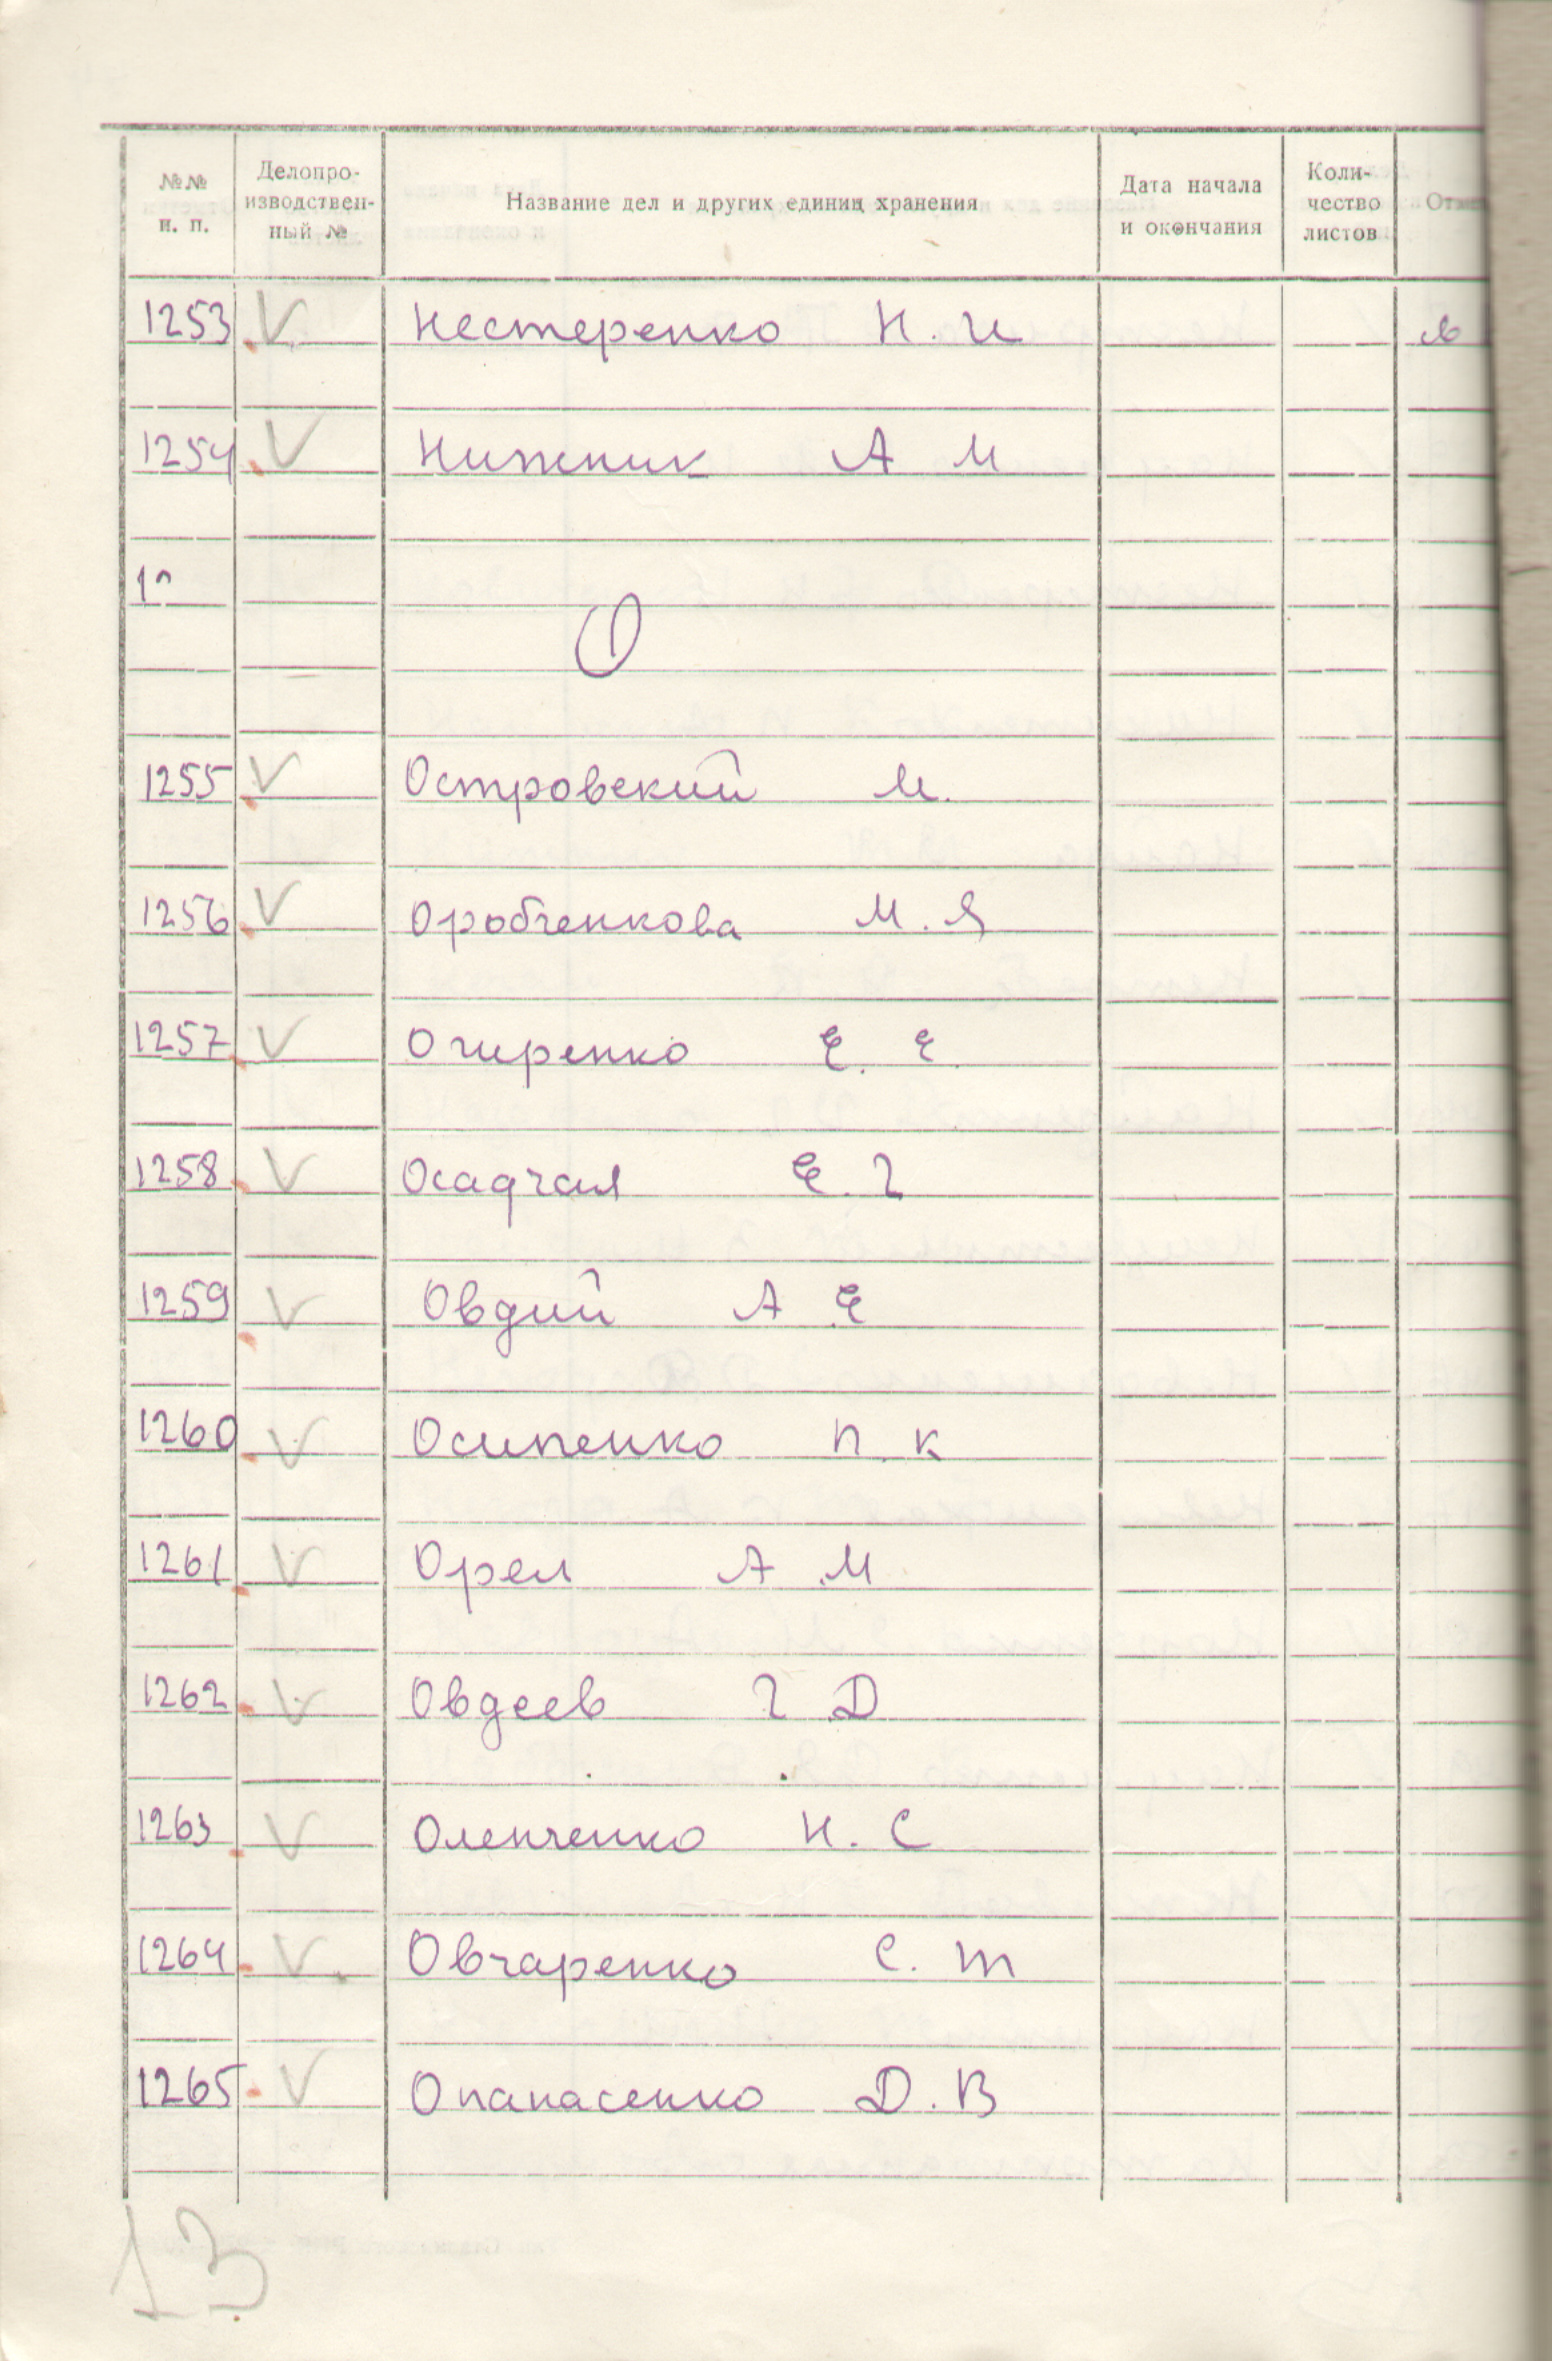 №№ п. п. Делопроизводственный № Название дел и других единиц хранения Дата начала и окончания Количество листов
1253 V Нестеренко Н. И
1254 V Нижник А М
1
О
1255 V Островский М.
1256 V Оробченкова М. Я
1257 V Очиренко Е. Е.
1258 V Осадчая Е. Г
1259 V Овдий А Е
1260 V Осипенко П. К
1261 V Орел А М
1262 V Овдеев Г Д
1263 V Оленченко Н. С
1264 V Овчаренко С. Т
1265 V Опанасенко Д. В
13